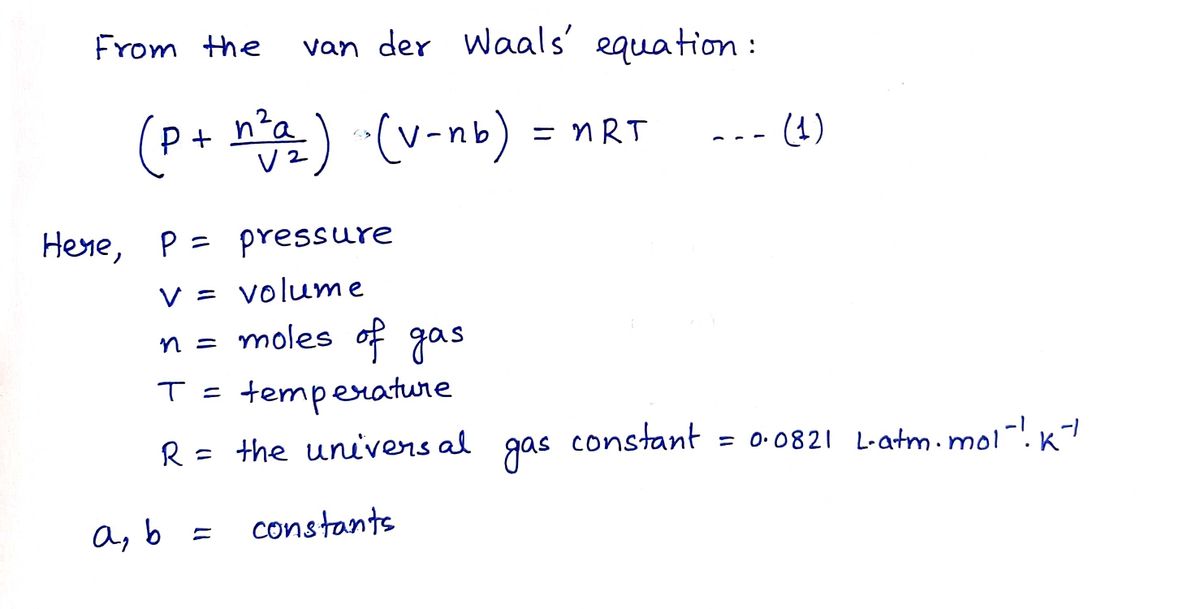 From the van der Waals' equation:
(P + n²a/V²) (V-nb) = nRT --- (1)
Here, P = pressure
V = volume
n = moles of gas
T = temperature
R = the universal gas constant = 0.0821 L.atm.mol⁻¹.K⁻¹
a, b = constants